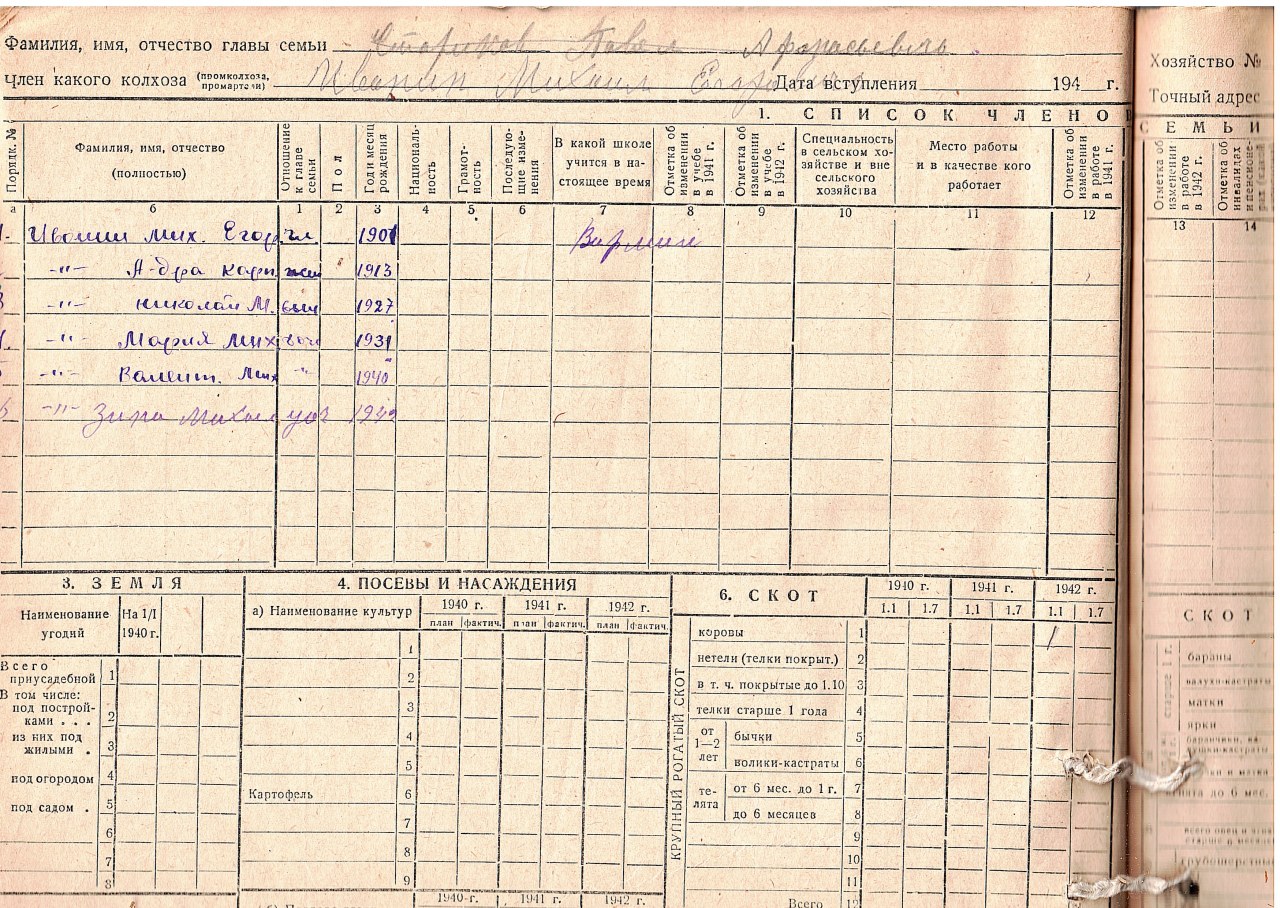 Фамилия, имя, отчество главы семьи Стариков Павел Афанасьевич
Член какого колхоза (промколхоза, промартели) Иванин Михаил Дата вступления 194 г.
Хозяйство №
Точный адрес
1. СПИСОК ЧЛЕНОВ СЕМЬИ
Порядк. № Фамилия, имя, отчество (полностью) Отношение к главе семьи Пол Год и месяц рождения Националь-ность Грамот-ность Последую-щие изме-нения В какой школе учится в на-стоящее время Отметка об изменении в учебе в 1941 г. Отметка об изменении в учебе в 1942 г. Специальность в сельском хо-зяйстве и вне сельского хозяйства Место работы и в качестве кого работает Отметка об изменения в работе в 1941 г. Отметка об изменении в работе в 1942 г. Отметка об инвалидах
а б 1 2 3 4 5 6 7 8 9 10 11 12 13 14
Мих. Егор гл. 1901
-"- А-дра Карп жен 1913
-"- Николай М. сын 1927
-"- Мария Мих 1931
-"- Валент. Мих -"- 1940
-"- Зина
3. ЗЕМЛЯ
Наименование угодий На 1/I 1940 г.
Всего приусадебной 1
В том числе:
под построй-ками . . . 2
из них под жилыми . 3
под огородом 4
под садом . 5
6
7
8
4. ПОСЕВЫ И НАСАЖДЕНИЯ
а) Наименование культур 1940 г. 1941 г. 1942 г.
план фактич. план фактич. план фактич.
1
2
3
4
5
Картофель 6
7
8
9
1940 г. 1941 г. 1942 г.
6. СКОТ 1940 г. 1941 г. 1942 г.
1.1 1.7 1.1 1.7 1.1 1.7
КРУПНЫЙ РОГАТЫЙ СКОТ
коровы 1 1
нетели (телки покрыт.) 2
в т. ч. покрытые до 1.10 3
телки старше 1 года 4
от 1—2 лет бычки 5
волики-кастраты 6
те-лята от 6 мес. до 1 г. 7
до 6 месяцев 8
9
10
11
Всего 12
СКОТ
старше 1 г.
бараны
валухи-кастраты
матки
ярки
до 6 мес.
грубошерстны